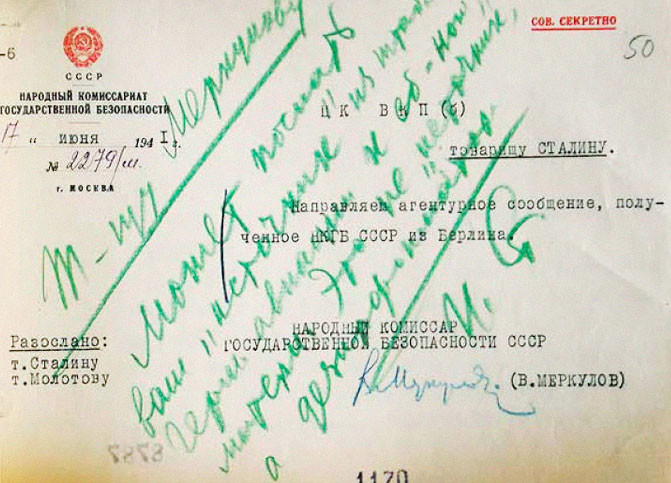 СОВ. СЕКРЕТНО
50
-6
СССР
НАРОДНЫЙ КОМИССАРИАТ
ГОСУДАРСТВЕННОЙ БЕЗОПАСНОСТИ
17 " июня 1941 г.
№ 2279/м.
г. МОСКВА
ЦК ВКП (б)
товарищу СТАЛИНУ.
Направляем агентурное сообщение, полу-
ченное НКГБ СССР из Берлина.
НАРОДНЫЙ КОМИССАР
ГОСУДАРСТВЕННОЙ БЕЗОПАСНОСТИ СССР
(В.МЕРКУЛОВ)
Разослано:
т.Сталину
т.Молотову
Т-щу Меркулову
Может послать
ваш "источник" из
герм. авиации к еб-ной
матери. Это не "источник",
а дезинформатор.
И. Ст
1170